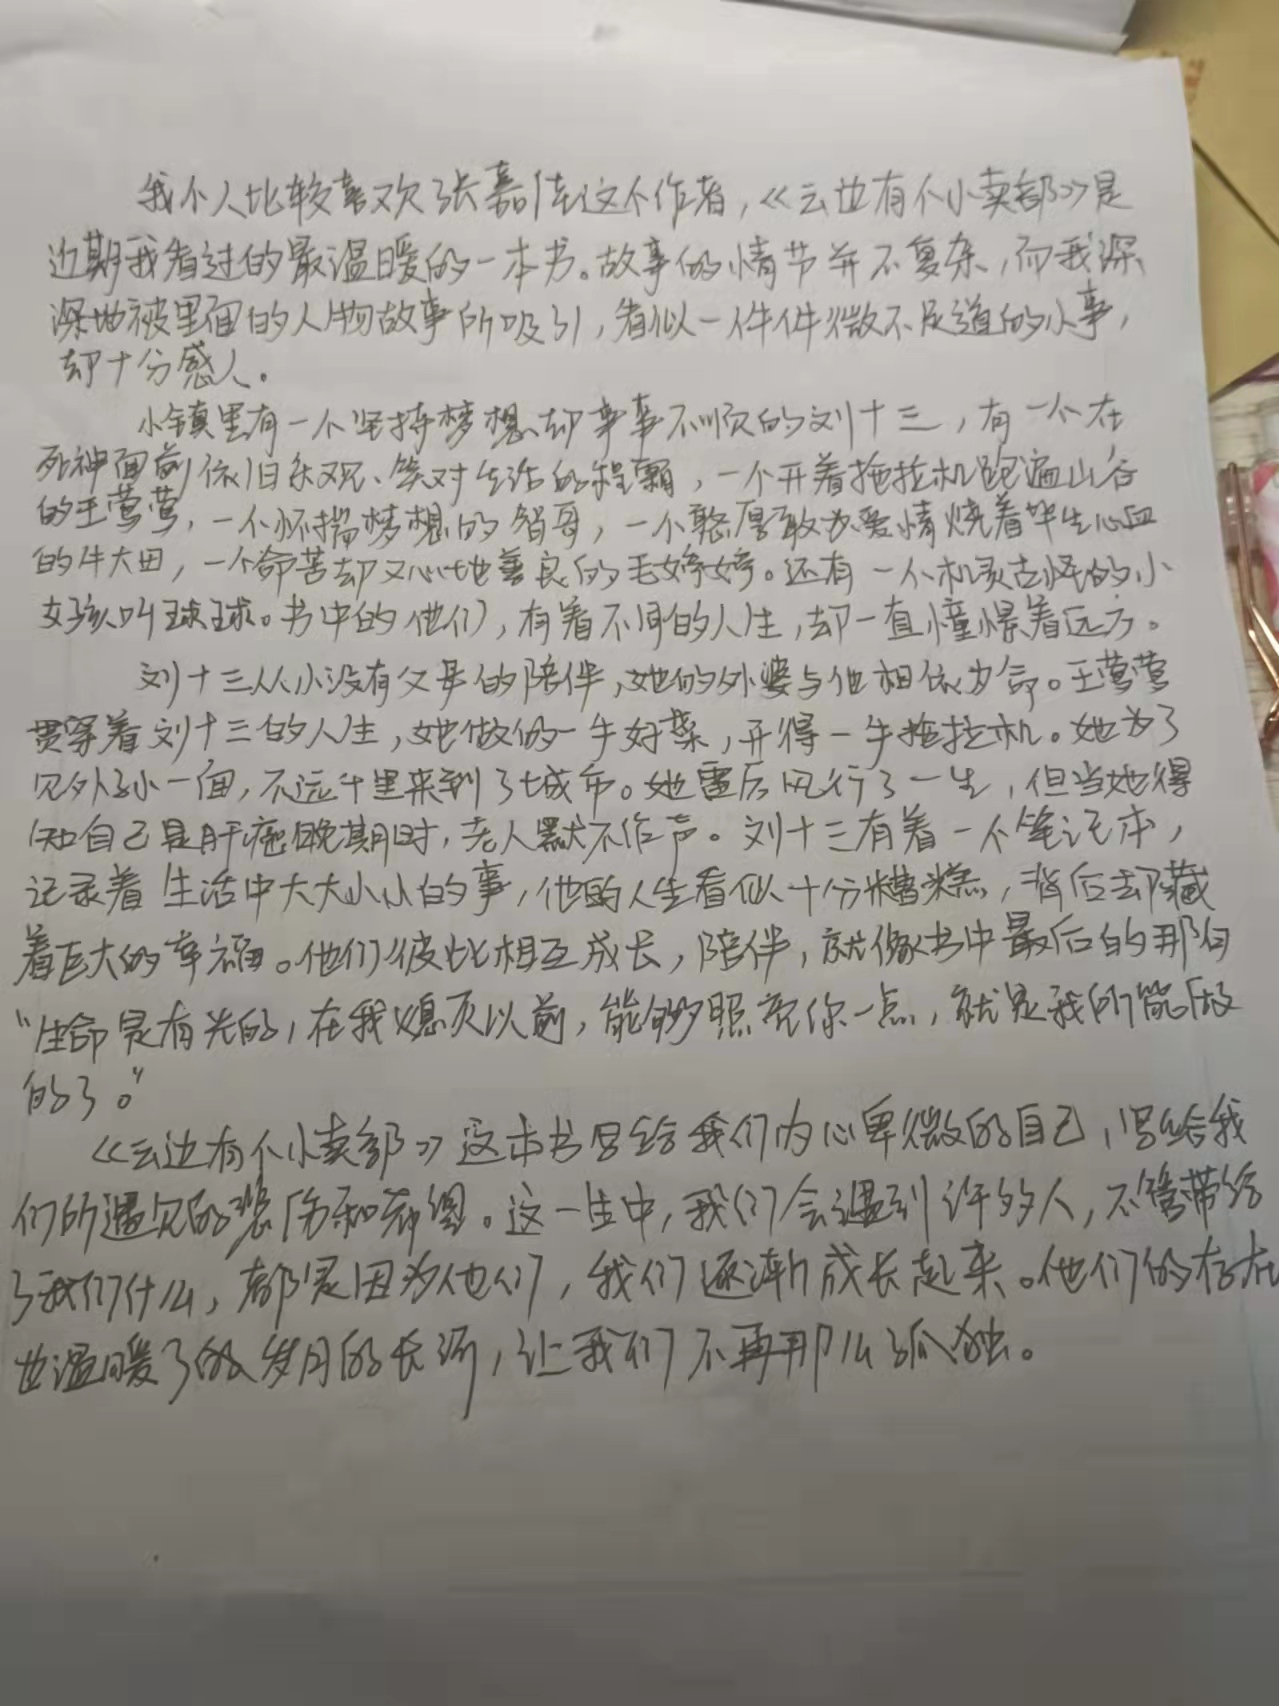 我个人比较喜欢张嘉佳这个作者，《云边有个小卖部》是
近期我看过的最温暖的一本书。故事的情节并不复杂，而我深
深地被里面的人物故事所吸引，看似一件件微不足道的小事，
却十分感人。
小镇里有一个坚持梦想却事事不顺的刘十三，有一个在
死神面前依旧乐观、笑对生活的程霜，一个开着拖拉机跑遍山谷
的王莺莺，一个怀揣梦想的智哥，一个憨厚敢为爱情烧着毕生心血
的牛大田，一个命苦却又心地善良的毛婷婷。还有一个机灵古怪的小
女孩叫球球。书中的他们，有着不同的人生，却一直憧憬着远方。
刘十三从小没有父母的陪伴，她的外婆与他相依为命。王莺莺
贯穿着刘十三的人生，她做的一手好菜，开得一手拖拉机。她为了
见外孙一面，不远千里来到了城市。她雷厉风行了一生，但当她得
知自己是肝癌晚期时，老人默不作声。刘十三有着一个笔记本，
记录着生活中大大小小的事，他的人生看似十分糟糕，背后却藏
着巨大的幸福。他们彼此相互成长，陪伴，就像书中最后的那句
“生命是有光的，在我熄灭以前，能够照亮你一点，就是我所能做
的了。”
《云边有个小卖部》这本书写给我们内心卑微的自己，写给我
们所遇见的悲伤和希望。这一生中，我们会遇到许多人，不管带给
了我们什么，都是因为他们，我们逐渐成长起来。他们的存在
也温暖了的岁月的长河，让我们不再那么孤独。